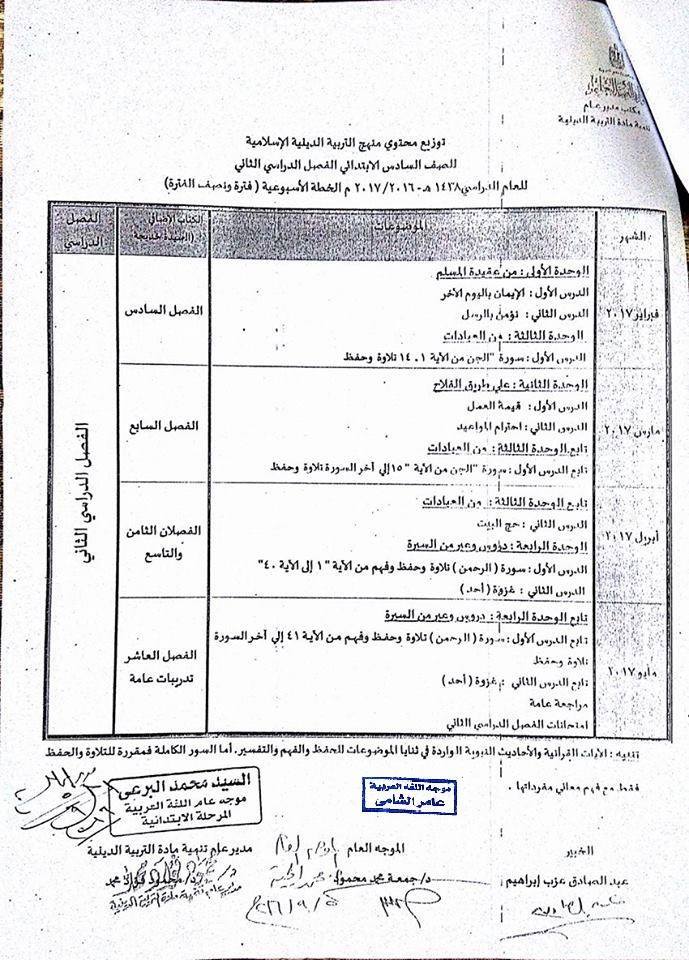 مكتب مدير عام
تنمية مادة التربية الدينية
توزيع محتوي منهج التربية الدينية الإسلامية
للصف السادس الابتدائي الفصل الدراسي الثاني
للعام الدراسي ١٤٣٨ هـ - ٢٠١٧/٢٠١٦ م الخطة الأسبوعية ( فترة ونصف الفترة )
الشهر
الموضوعات
الكتاب الإضافي
(السيدة خديجة
الفصل
الدراسي
فبراير ٢٠١٧
الوحدة الأولى : من عقيدة المسلم
الدرس الأول : الإيمان باليوم الآخر
الدرس الثاني : نؤمن بالرسل
الوحدة الثالثة : من العبادات
الدرس الأول : سورة "الجن من الآية ١ ـ ١٤ تلاوة وحفظ
الفصل السادس
الفصل الدراسي الثاني
مارس ٢٠١٧
الوحدة الثانية : علي طريق الفلاح
الدرس الأول : قيمة العمل
الدرس الثاني : احترام المواعيد
تابع الوحدة الثالثة : من العبادات
تابع الدرس الأول : سورة "الجن من الآية "١٥ إلي أخر السورة تلاوة وحفظ
الفصل السابع
أبريل ٢٠١٧
تابع الوحدة الثالثة : من العبادات
الدرس الثاني : حج البيت
الوحدة الرابعة : دروس وعبر من السيرة
الدرس الأول : سورة ( الرحمن ) تلاوة وحفظ وفهم من الآية "١ إلى الآية ٤٠"
الدرس الثاني : غزوة ( أحد )
الفصلان الثامن
والتاسع
مايو ٢٠١٧
تابع الوحدة الرابعة : دروس وعبر من السيرة
تابع الدرس الأول : سورة ( الرحمن ) تلاوة وحفظ وفهم من الآية ٤١ إلي أخر السورة
تلاوة وحفظ
تابع الدرس الثاني : غزوة ( أحد )
مراجعة عامة
امتحانات الفصل الدراسي الثاني
الفصل العاشر
تدريبات عامة
تنبيه : الآيات القرآنية والأحاديث النبوية الواردة في ثنايا الموضوعات للحفظ والفهم والتفسير. أما السور الكاملة فمقررة للتلاوة والحفظ
فقط مع فهم معاني مفرداتها .
موجه اللغة العربية
عامر الشامى
السيد محمد البرعى
موجه عام اللغة العربية
المرحلة الابتدائية
الخبير
عبد الصادق عزب إبراهيم
الموجه العام
د/ جمعة محمد محمود
مدير عام تنمية مادة التربية الدينية
د/ محمود فؤاد محمد